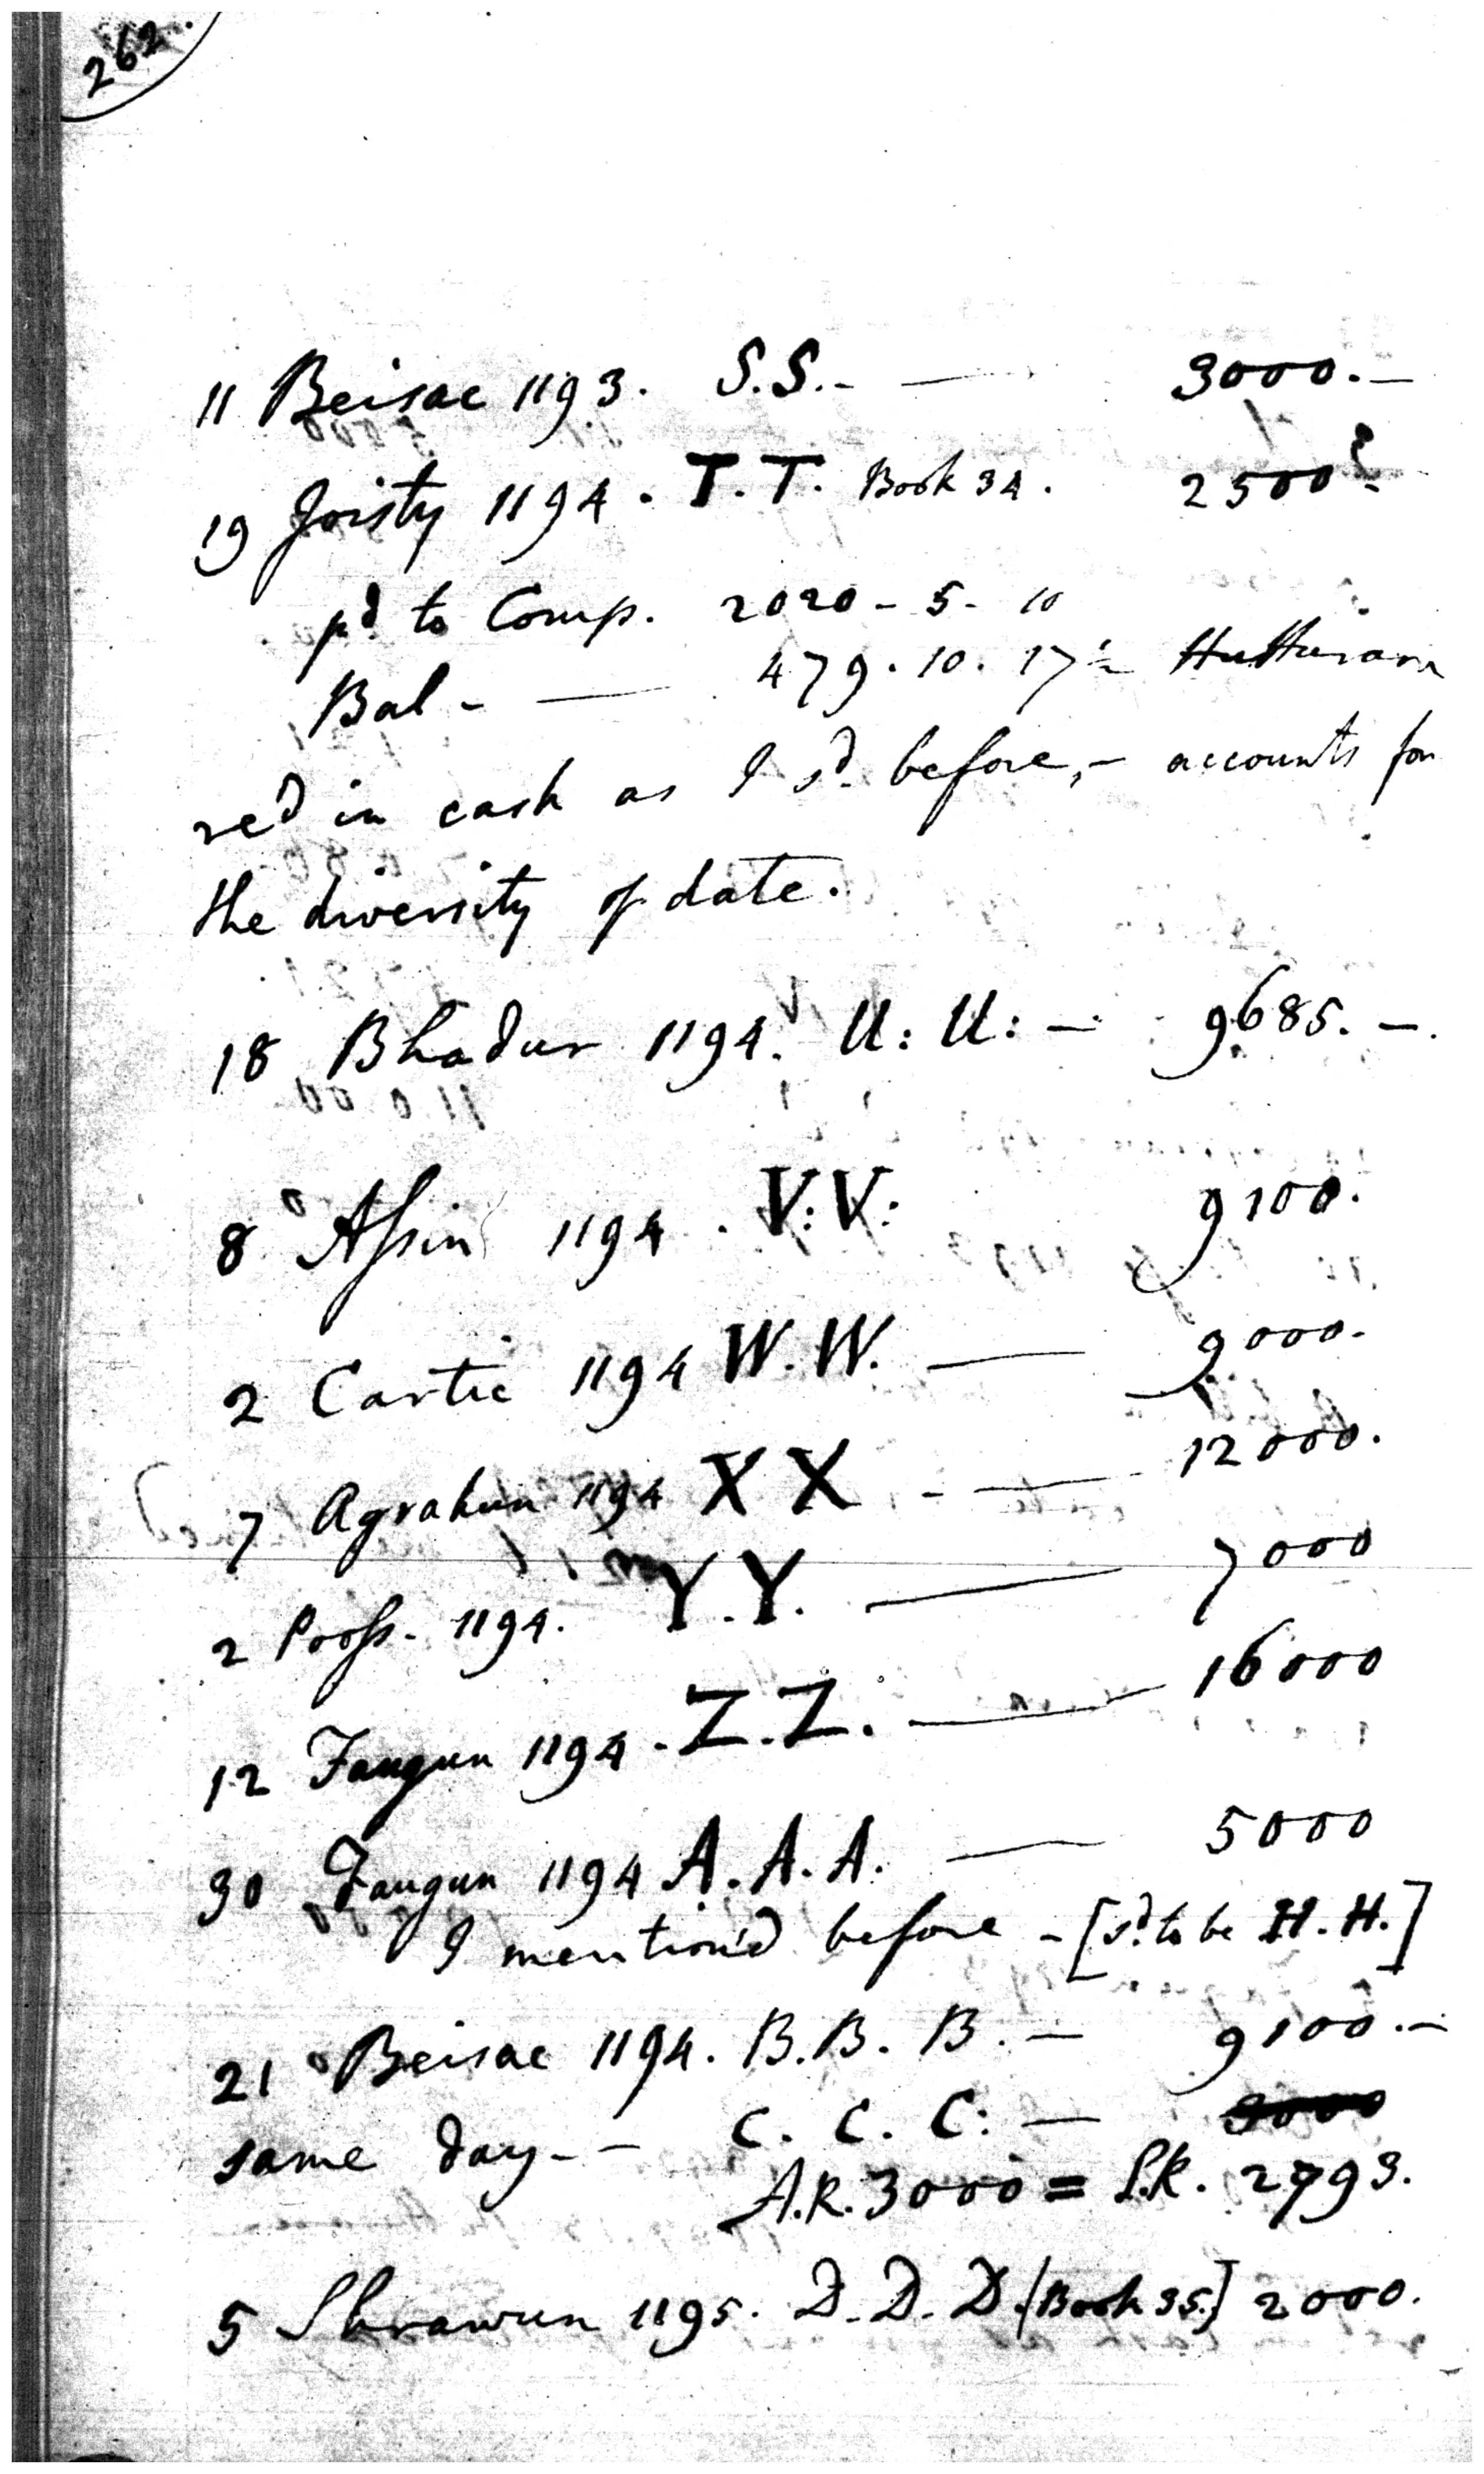 262.
11 Beisac 1193. S.S. - — 3000. —
19 Joisty 1194. T.T. Book 34. 2500 -
pd. to Comp. 2020 - 5 - 10
Bal - — 479. 10. 17
red in cash as I sd. before, - accounts for
the diversity of date.
18 Bhadur 1194. U: U: — 9685. —.
8 Assin 1194. V: V: 9100.
2 Cartic 1194 W. W. — 9000.
7 Agrahun 1194 X X - — 12000.
2 Pooss. 1194. Y. Y. — 7000
12 Faugun 1194. Z. Z. — 16000
30 Faugun 1194 A. A. A. — 5000
I mention'd before - [sd. to be H. H.]
21 Beisac 1194. B. B. B. — 9100. —
same day - — C. C. C: — 3000
A.R. 3000 = S.R. 2793.
5 Shrawun 1195. D. D. D. [Book 35.] 2000.